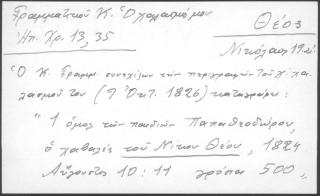 Γραμματικοῦ Κ. Ὁ χαλασμός μου
Θέος
Ἀπ. Χρ. 13, 35
Νικόλαος 19 αἰ.
Ὁ Κ. Γραμμ. συνεχίζων τὴν περιγραφὴν τοῦ χα-
λασμοῦ του (9 Ὀκτ. 1826) καταγράφει:
"1 ὁμολ. τῶν παιδιῶν Παπαθεοδώρου,
ὁ χαβαλὲς τοῦ Νίκου Θέου, 1824
Αὔγουστος 10:11 γρόσια 500 „